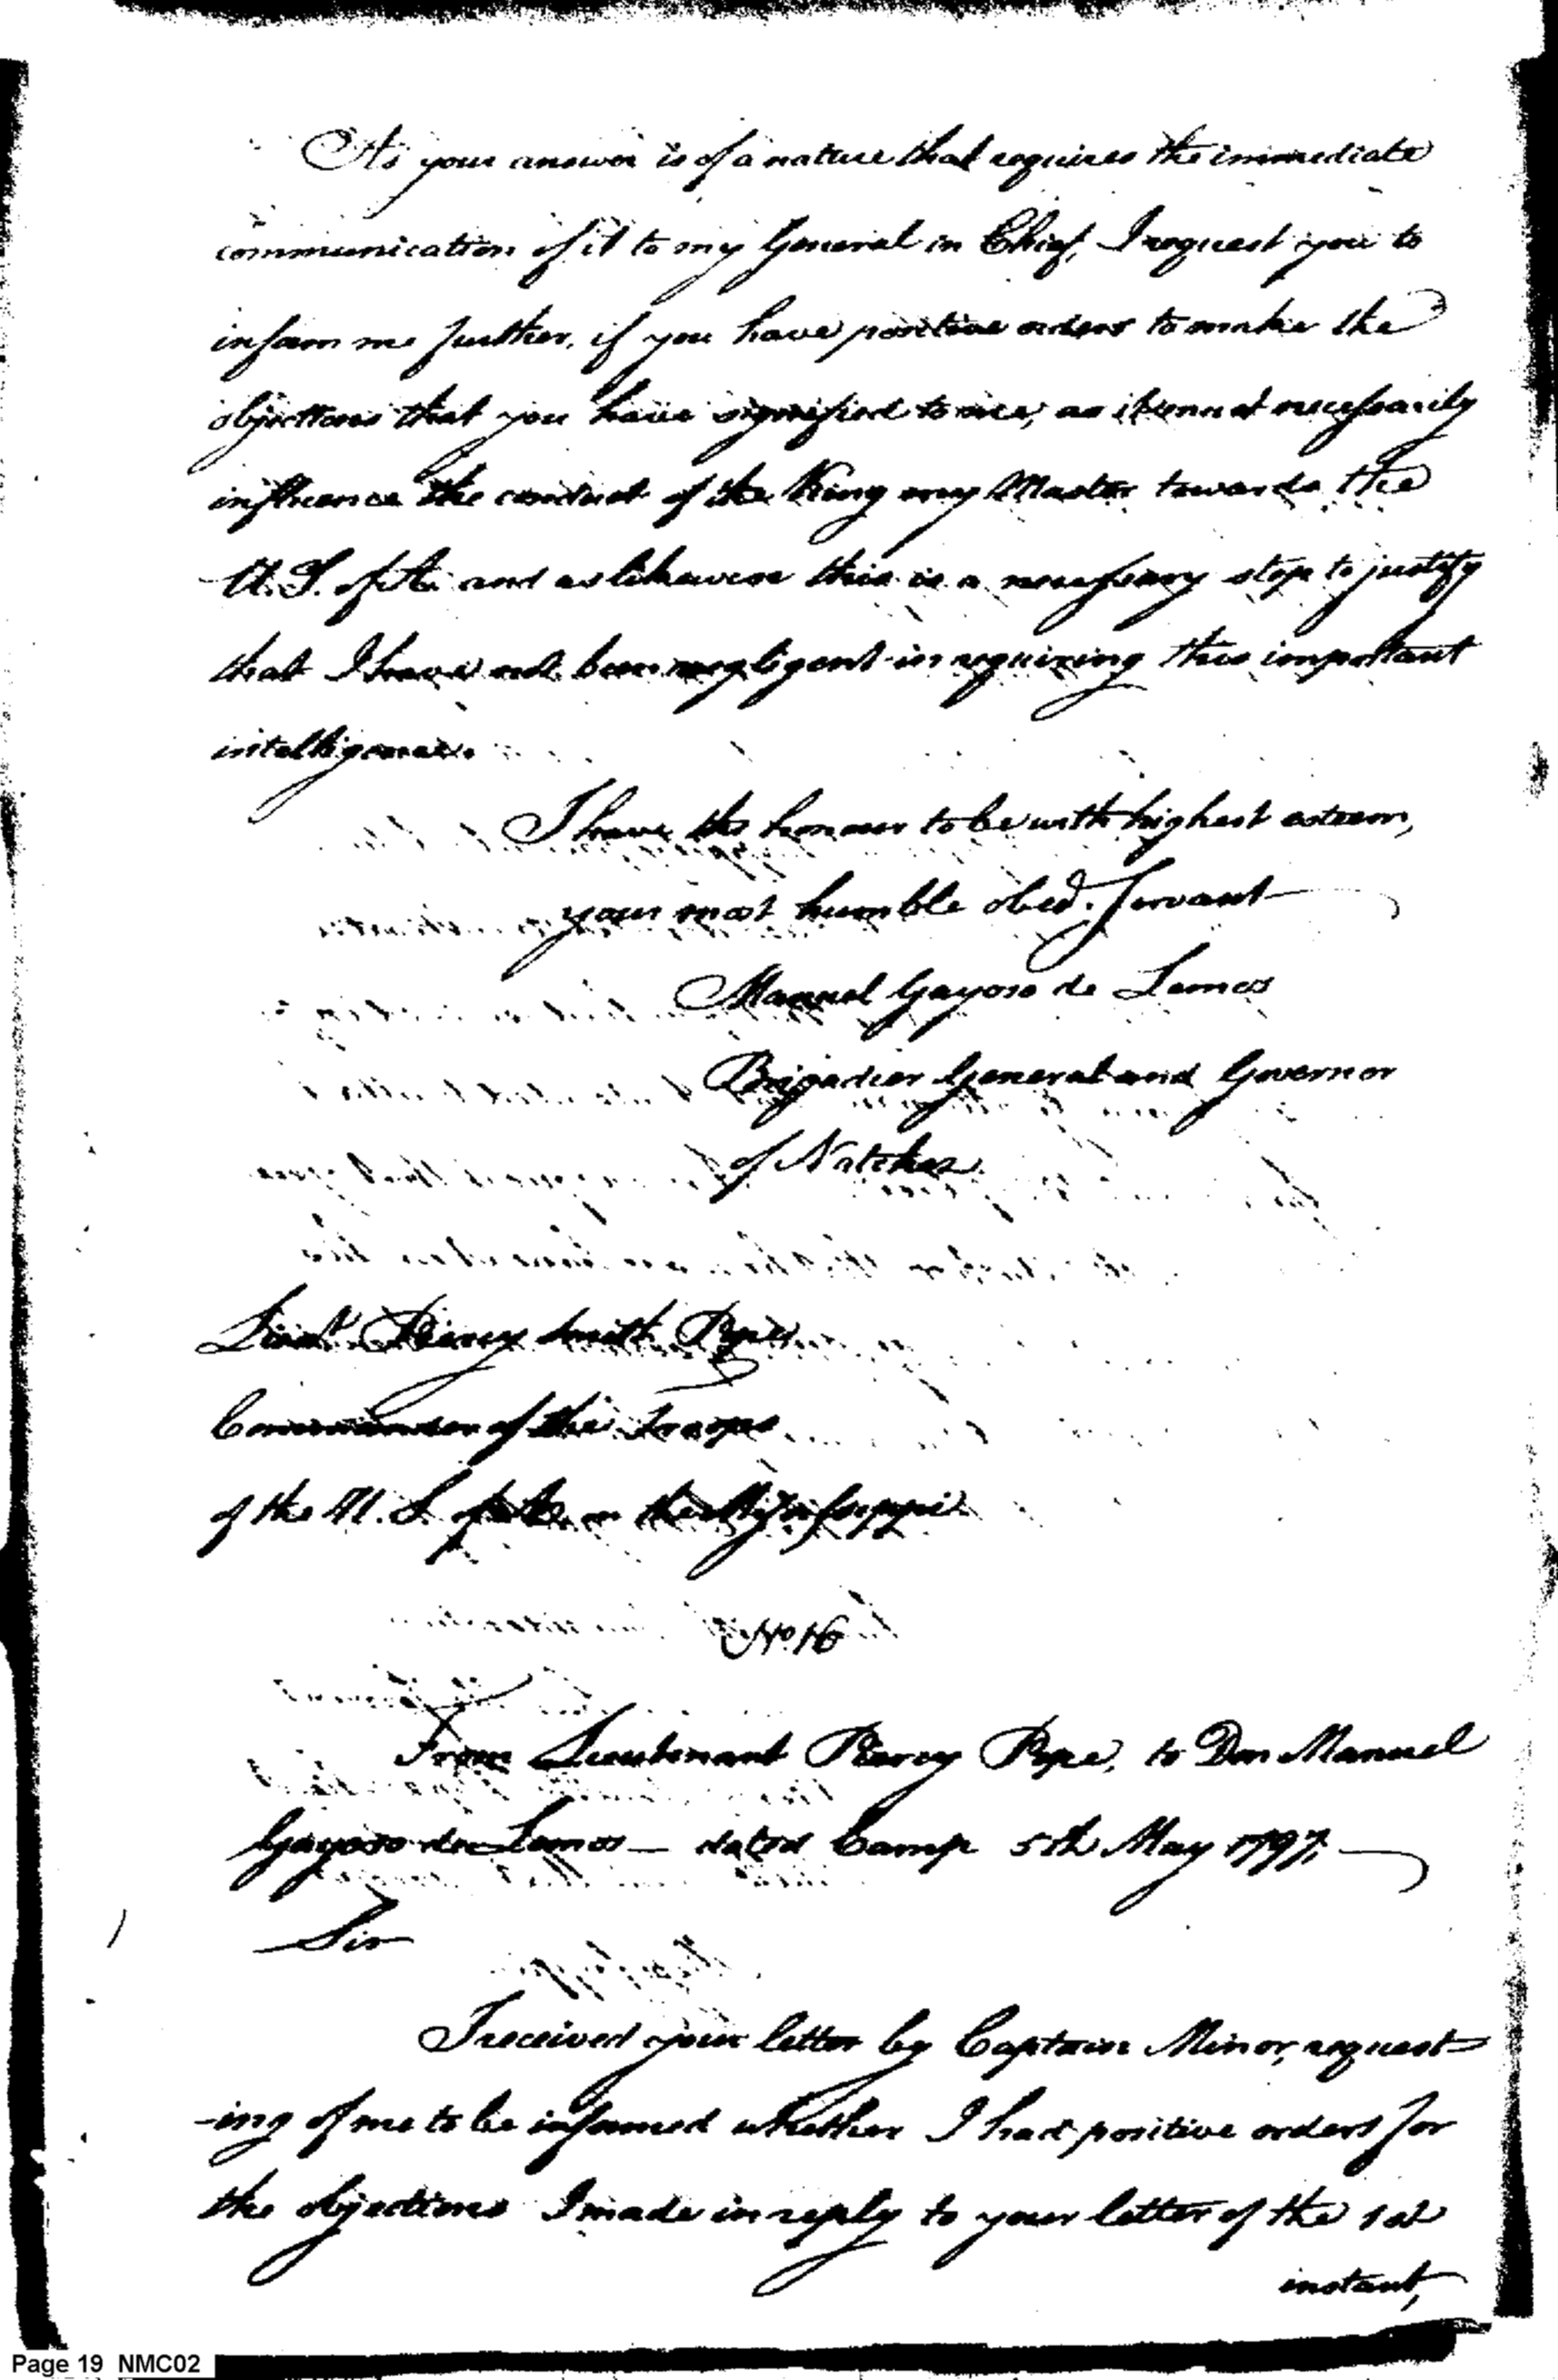 As your answer is of a nature that requires the immediate
communication of it to my General in Chief, I request you to
inform me further, if you have positive orders to make the
objections that you have signified to me, as it must necessarily
influence the conduct of the King my Master towards the
U. S. of A. and as likewise this is a necessary step to justify
that I have not been negligent in requiring this important
intelligence.
I have the honour to be with highest esteem,
your most humble obed. servant
Manuel Gayoso de Lemos
Brigadier General and Governor
of Natchez.
Lieut. Piercy Smith Pope
Commander of the Troops
of the U. S. of A. on the Mississippi
No. 16
From Lieutenant Piercy Pope, to Don Manuel
Gayoso de Lemos — dated Camp 5th May 1797,
Sir
I received your letter by Captain Minor, request-
-ing of me to be informed whether I had positive orders for
the objections I made in reply to your letter of the 1st
instant,
Page 19 NMC02